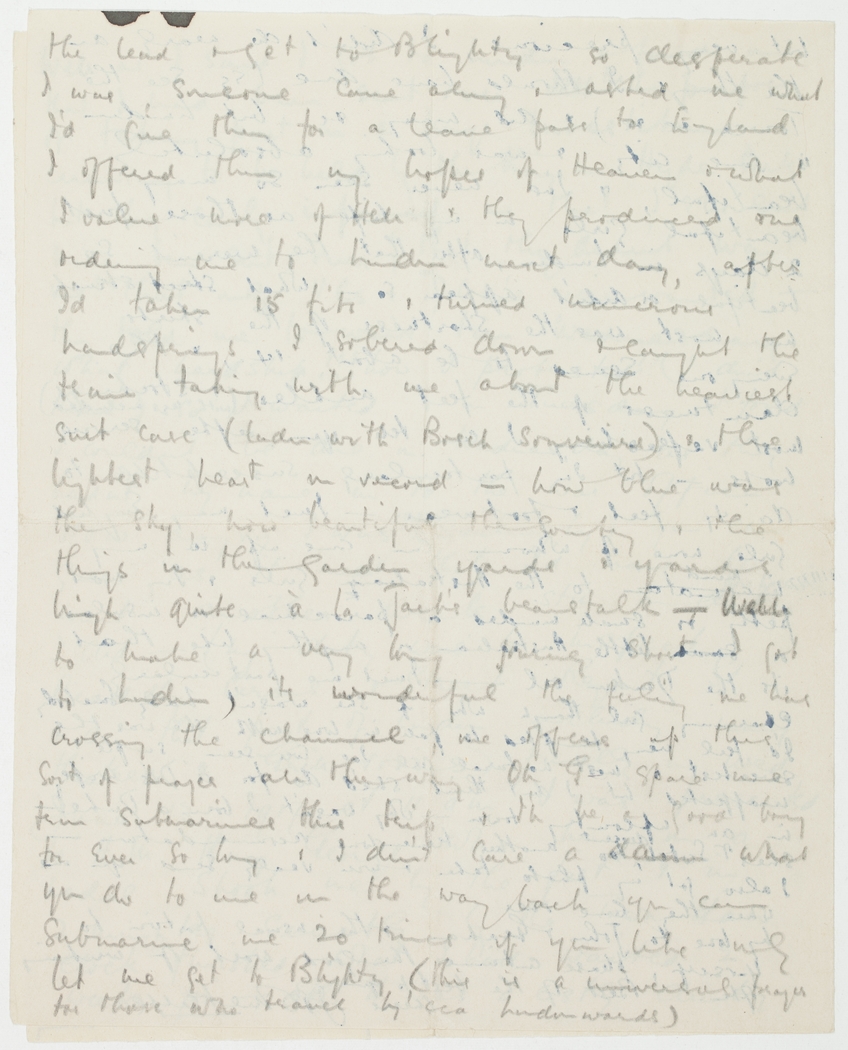 the lead & get to Blighty so desperate
I was, someone came along & asked me what
I'd give them for a leave pass to England
I offered them my hopes of Heaven & what
I value more of Hell & they produced one
ordering me to London next day, after
I'd taken 15 fits & turned numerous
handsprings I sobered down & caught the
train taking with me about the heaviest
suit case (laden with Bosch Souvenirs) & the
lightest heart on record – how blue was
the sky, how beautiful the country & the
things in the garden yards & yards
high quite à la Jack's beanstalk – Well
to make a very long journey short I got
to London, its wonderful the feeling one has
crossing the channel, one offers up this
sort of prayer all the way Oh G– spare me
from submarines this trip & I'll be a good boy
for ever so long & I don't care a damn what
you do to me on the way back you can
Submarine me 20 times if you like only
let me get to Blighty. (This is a universal prayer
for those who travel by sea Londonwards)